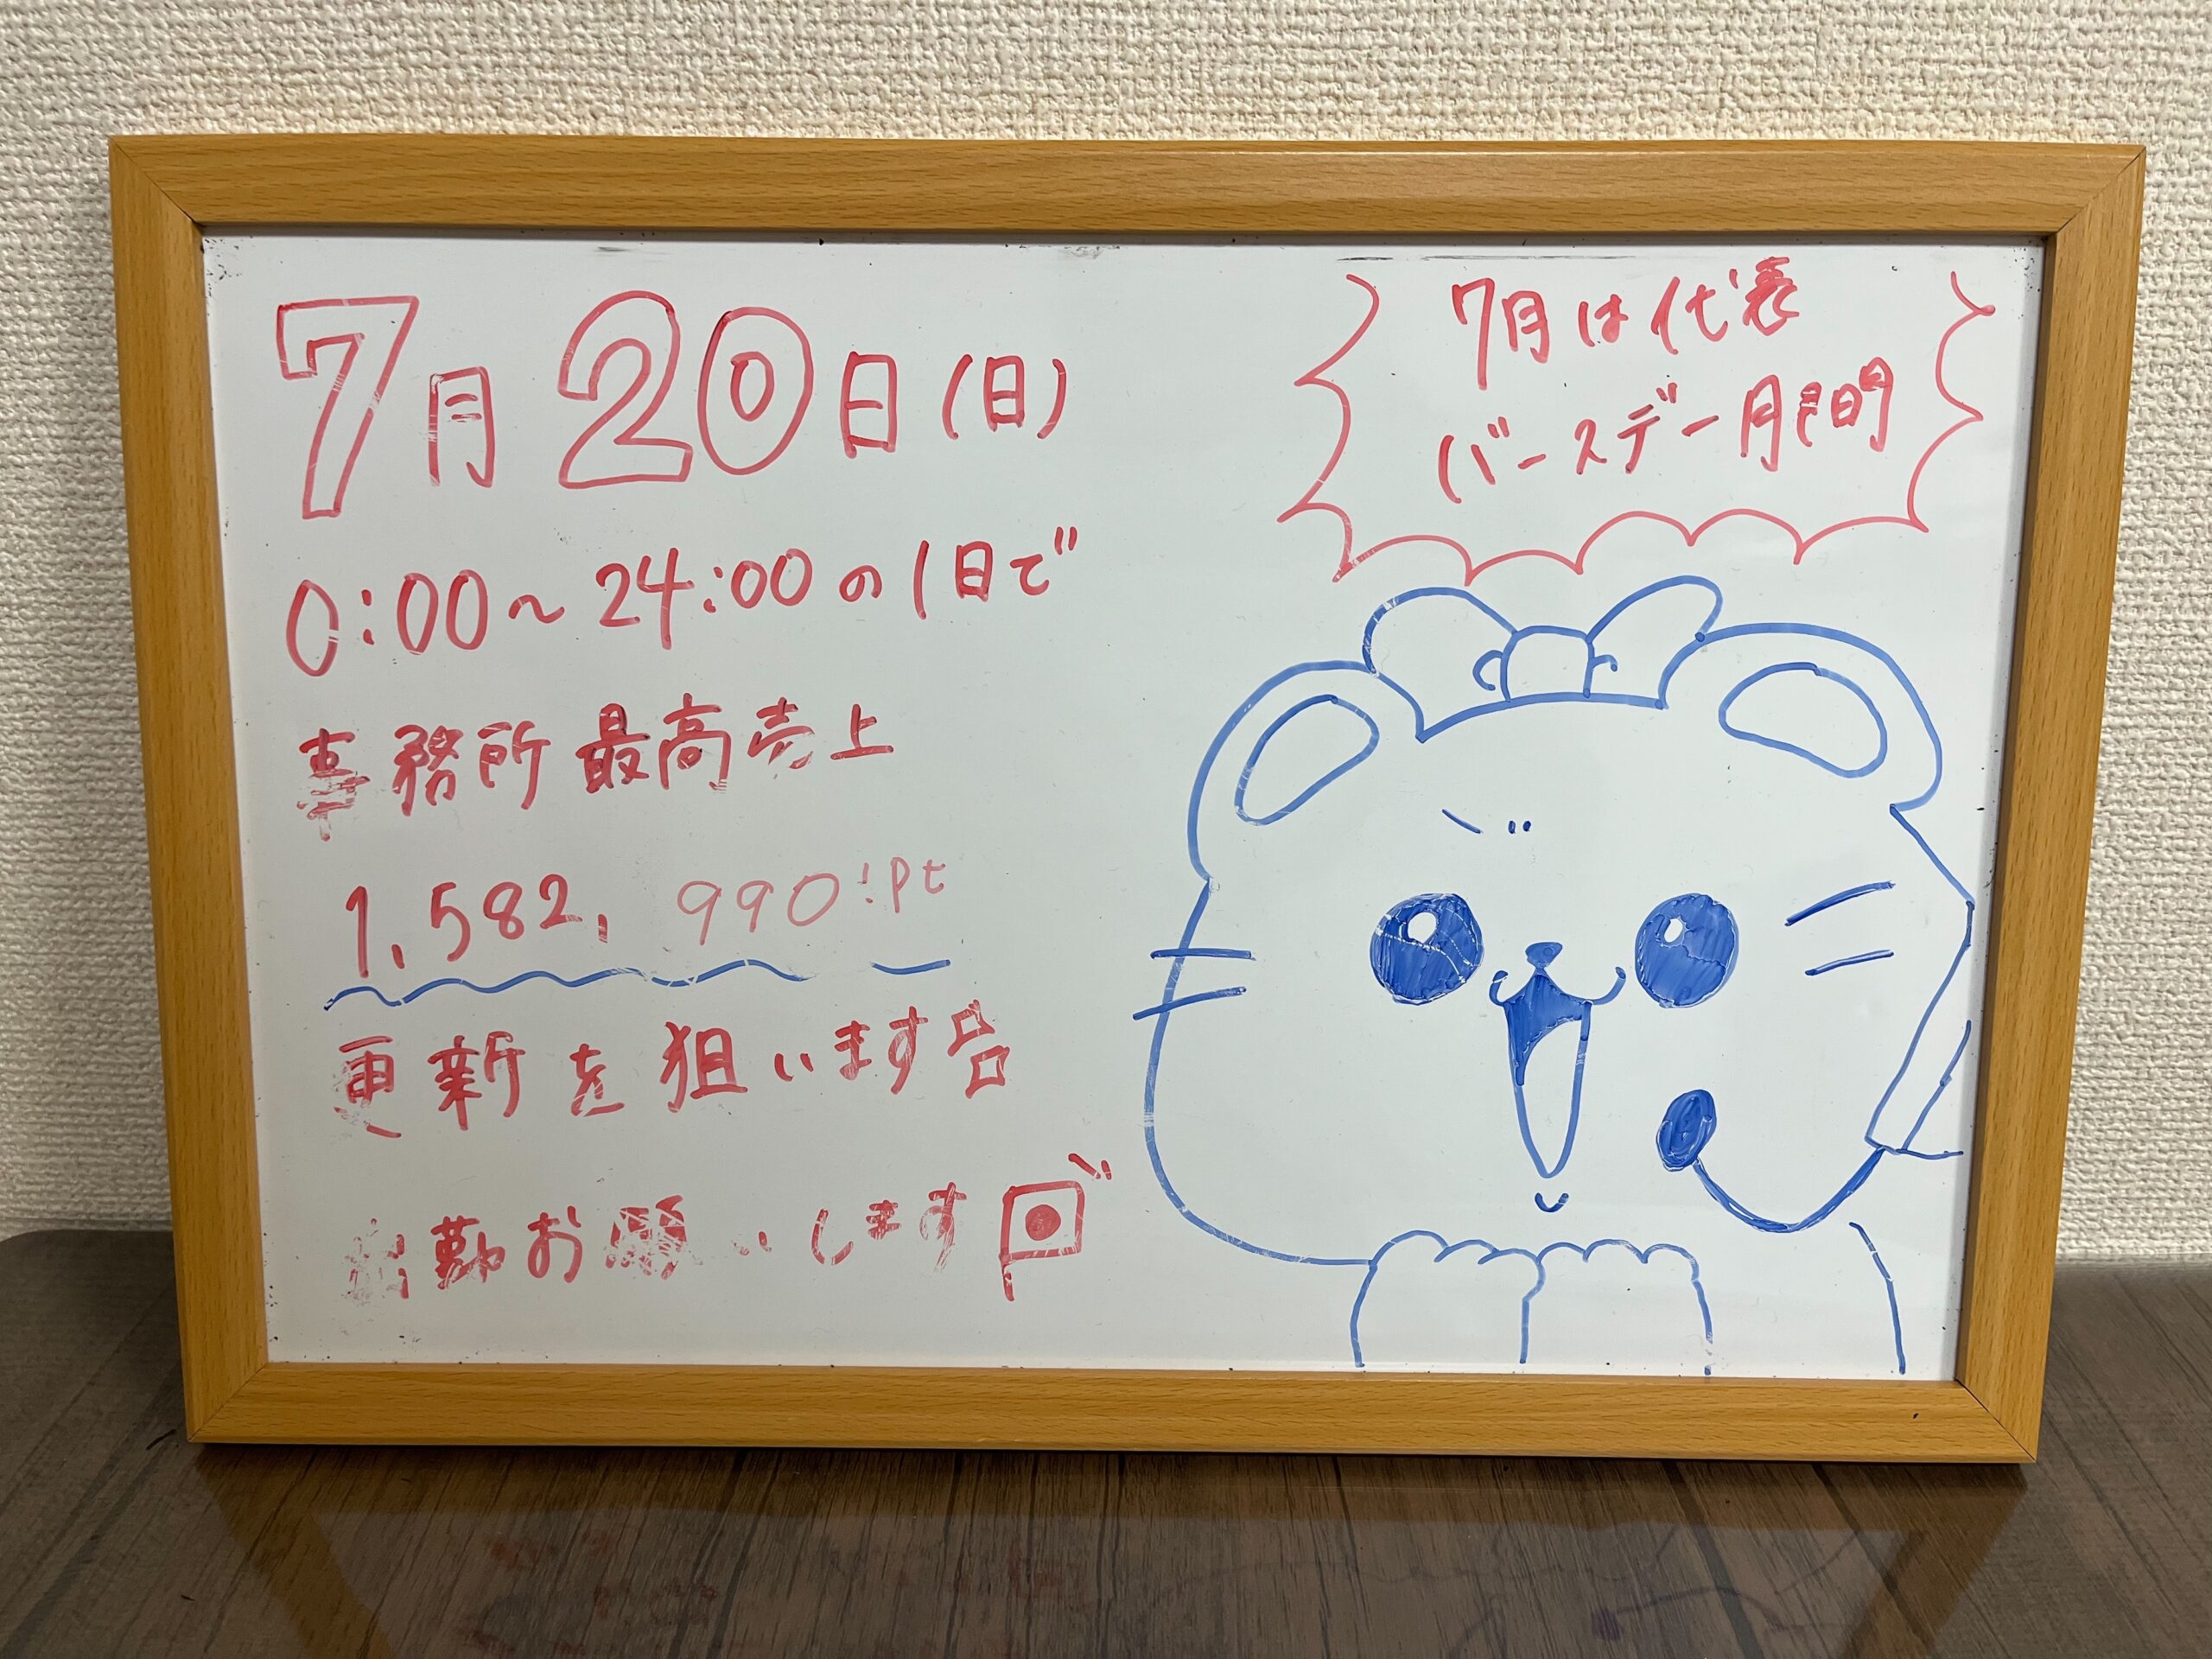 7月20日(日)
0:00~24:00の1日で
事務所最高売上
1,582,990!pt
更新を狙います
出勤お願いします
7月は代表
バースデー月間